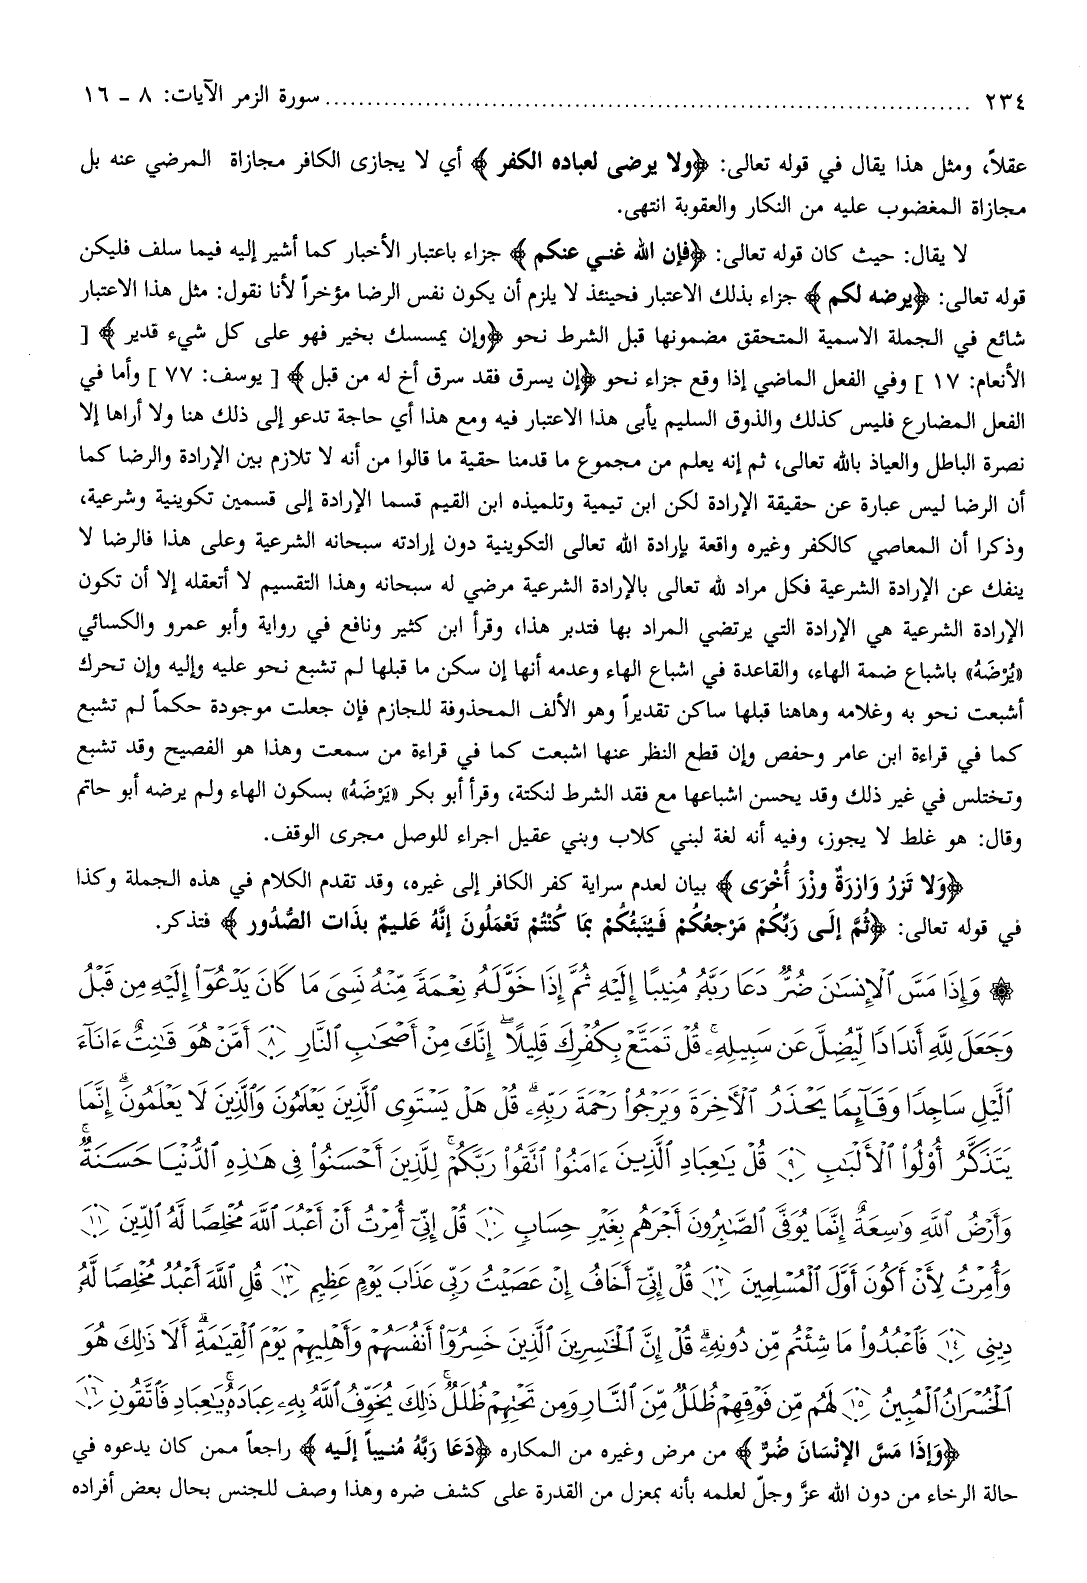 ٢٣٤ ........................................................................ سورة الزمر الآيات: ٨ ـ ١٦
عقلاً، ومثل هذا يقال في قوله تعالى: ﴿ولا يرضى لعباده الكفر﴾ أي لا يجازى الكافر مجازاة المرضي عنه بل
مجازاة المغضوب عليه من النكار والعقوبة انتهى.
لا يقال: حيث كان قوله تعالى: ﴿فإن الله غني عنكم﴾ جزاء باعتبار الأخبار كما أشير إليه فيما سلف فليكن
قوله تعالى: ﴿يرضه لكم﴾ جزاء بذلك الاعتبار فحينئذ لا يلزم أن يكون نفس الرضا مؤخراً لأنا نقول: مثل هذا الاعتبار
شائع في الجملة الاسمية المتحقق مضمونها قبل الشرط نحو ﴿وإن يمسسك بخير فهو على كل شيء قدير﴾ [
الأنعام: ١٧ ] وفي الفعل الماضي إذا وقع جزاء نحو ﴿إن يسرق فقد سرق أخ له من قبل﴾ [ يوسف: ٧٧ ] وأما في
الفعل المضارع فليس كذلك والذوق السليم يأبى هذا الاعتبار فيه ومع هذا أي حاجة تدعو إلى ذلك هنا ولا أراها إلا
نصرة الباطل والعياذ بالله تعالى، ثم إنه يعلم من مجموع ما قدمنا حقية ما قالوا من أنه لا تلازم بين الإرادة والرضا كما
أن الرضا ليس عبارة عن حقيقة الإرادة لكن ابن تيمية وتلميذه ابن القيم قسما الإرادة إلى قسمين تكوينية وشرعية،
وذكرا أن المعاصي كالكفر وغيره واقعة بإرادة الله تعالى التكوينية دون إرادته سبحانه الشرعية وعلى هذا فالرضا لا
ينفك عن الإرادة الشرعية فكل مراد لله تعالى بالإرادة الشرعية مرضي له سبحانه وهذا التقسيم لا أتعقله إلا أن تكون
الإرادة الشرعية هي الإرادة التي يرتضي المراد بها فتدبر هذا، وقرأ ابن كثير ونافع في رواية وأبو عمرو والكسائي
«يُرْضَهُ» باشباع ضمة الهاء، والقاعدة في اشباع الهاء وعدمه أنها إن سكن ما قبلها لم تشبع نحو عليه وإليه وإن تحرك
أشبعت نحو به وغلامه وهاهنا قبلها ساكن تقديراً وهو الألف المحذوفة للجازم فإن جعلت موجودة حكماً لم تشبع
كما في قراءة ابن عامر وحفص وإن قطع النظر عنها اشبعت كما في قراءة من سمعت وهذا هو الفصيح وقد تشبع
وتختلس في غير ذلك وقد يحسن اشباعها مع فقد الشرط لنكتة، وقرأ أبو بكر «يَرْضَهُ» بسكون الهاء ولم يرضه أبو حاتم
وقال: هو غلط لا يجوز، وفيه أنه لغة لبني كلاب وبني عقيل اجراء للوصل مجرى الوقف.
﴿وَلا تَزرُ وَازرَةٌ وزْرَ أُخْرَى﴾ بيان لعدم سراية كفر الكافر إلى غيره، وقد تقدم الكلام في هذه الجملة وكذا
في قوله تعالى: ﴿ثُمَّ إلَى رَبِّكُمْ مَرْجعُكُمْ فَيُنَبئُكُمْ بمَا كُنْتُمْ تَعْمَلُونَ إنَّهُ عَليمٌ بذَات الصُّدُور﴾ فتذكر.
۞ وَإِذَا مَسَّ ٱلْإِنسَٰنَ ضُرٌّ دَعَا رَبَّهُۥ مُنِيبًا إِلَيْهِ ثُمَّ إِذَا خَوَّلَهُۥ نِعْمَةً مِّنْهُ نَسِىَ مَا كَانَ يَدْعُوٓا۟ إِلَيْهِ مِن قَبْلُ
وَجَعَلَ لِلَّهِ أَندَادًا لِّيُضِلَّ عَن سَبِيلِهِۦ ۚ قُلْ تَمَتَّعْ بِكُفْرِكَ قَلِيلًا ۖ إِنَّكَ مِنْ أَصْحَٰبِ ٱلنَّارِ ﴿٨﴾ أَمَّنْ هُوَ قَٰنِتٌ ءَانَآءَ
ٱلَّيْلِ سَاجِدًا وَقَآئِمًا يَحْذَرُ ٱلْأَخِرَةَ وَيَرْجُوا۟ رَحْمَةَ رَبِّهِۦ ۗ قُلْ هَلْ يَسْتَوِى ٱلَّذِينَ يَعْلَمُونَ وَٱلَّذِينَ لَا يَعْلَمُونَ ۗ إِنَّمَا
يَتَذَكَّرُ أُو۟لُوا۟ ٱلْأَلْبَٰبِ ﴿٩﴾ قُلْ يَٰعِبَادِ ٱلَّذِينَ ءَامَنُوا۟ ٱتَّقُوا۟ رَبَّكُمْ ۚ لِلَّذِينَ أَحْسَنُوا۟ فِى هَٰذِهِ ٱلدُّنْيَا حَسَنَةٌ ۗ
وَأَرْضُ ٱللَّهِ وَٰسِعَةٌ ۗ إِنَّمَا يُوَفَّى ٱلصَّٰبِرُونَ أَجْرَهُم بِغَيْرِ حِسَابٍ ﴿١٠﴾ قُلْ إِنِّىٓ أُمِرْتُ أَنْ أَعْبُدَ ٱللَّهَ مُخْلِصًا لَّهُ ٱلدِّينَ ﴿١١﴾
وَأُمِرْتُ لِأَنْ أَكُونَ أَوَّلَ ٱلْمُسْلِمِينَ ﴿١٢﴾ قُلْ إِنِّىٓ أَخَافُ إِنْ عَصَيْتُ رَبِّى عَذَابَ يَوْمٍ عَظِيمٍ ﴿١٣﴾ قُلِ ٱللَّهَ أَعْبُدُ مُخْلِصًا لَّهُۥ
دِينِى ﴿١٤﴾ فَٱعْبُدُوا۟ مَا شِئْتُم مِّن دُونِهِۦ ۗ قُلْ إِنَّ ٱلْخَٰسِرِينَ ٱلَّذِينَ خَسِرُوٓا۟ أَنفُسَهُمْ وَأَهْلِيهِمْ يَوْمَ ٱلْقِيَٰمَةِ ۗ أَلَا ذَٰلِكَ هُوَ
ٱلْخُسْرَانُ ٱلْمُبِينُ ﴿١٥﴾ لَهُم مِّن فَوْقِهِمْ ظُلَلٌ مِّنَ ٱلنَّارِ وَمِن تَحْتِهِمْ ظُلَلٌ ۚ ذَٰلِكَ يُخَوِّفُ ٱللَّهُ بِهِۦ عِبَادَهُۥ ۚ يَٰعِبَادِ فَٱتَّقُونِ ﴿١٦﴾
﴿وَإذَا مَسَّ الإنْسَانَ ضُرٌّ﴾ من مرض وغيره من المكاره ﴿دَعَا رَبَّهُ مُنيباً إلَيه﴾ راجعاً ممن كان يدعوه في
حالة الرخاء من دون الله عزَّ وجلّ لعلمه بأنه بمعزل من القدرة على كشف ضره وهذا وصف للجنس بحال بعض أفراده